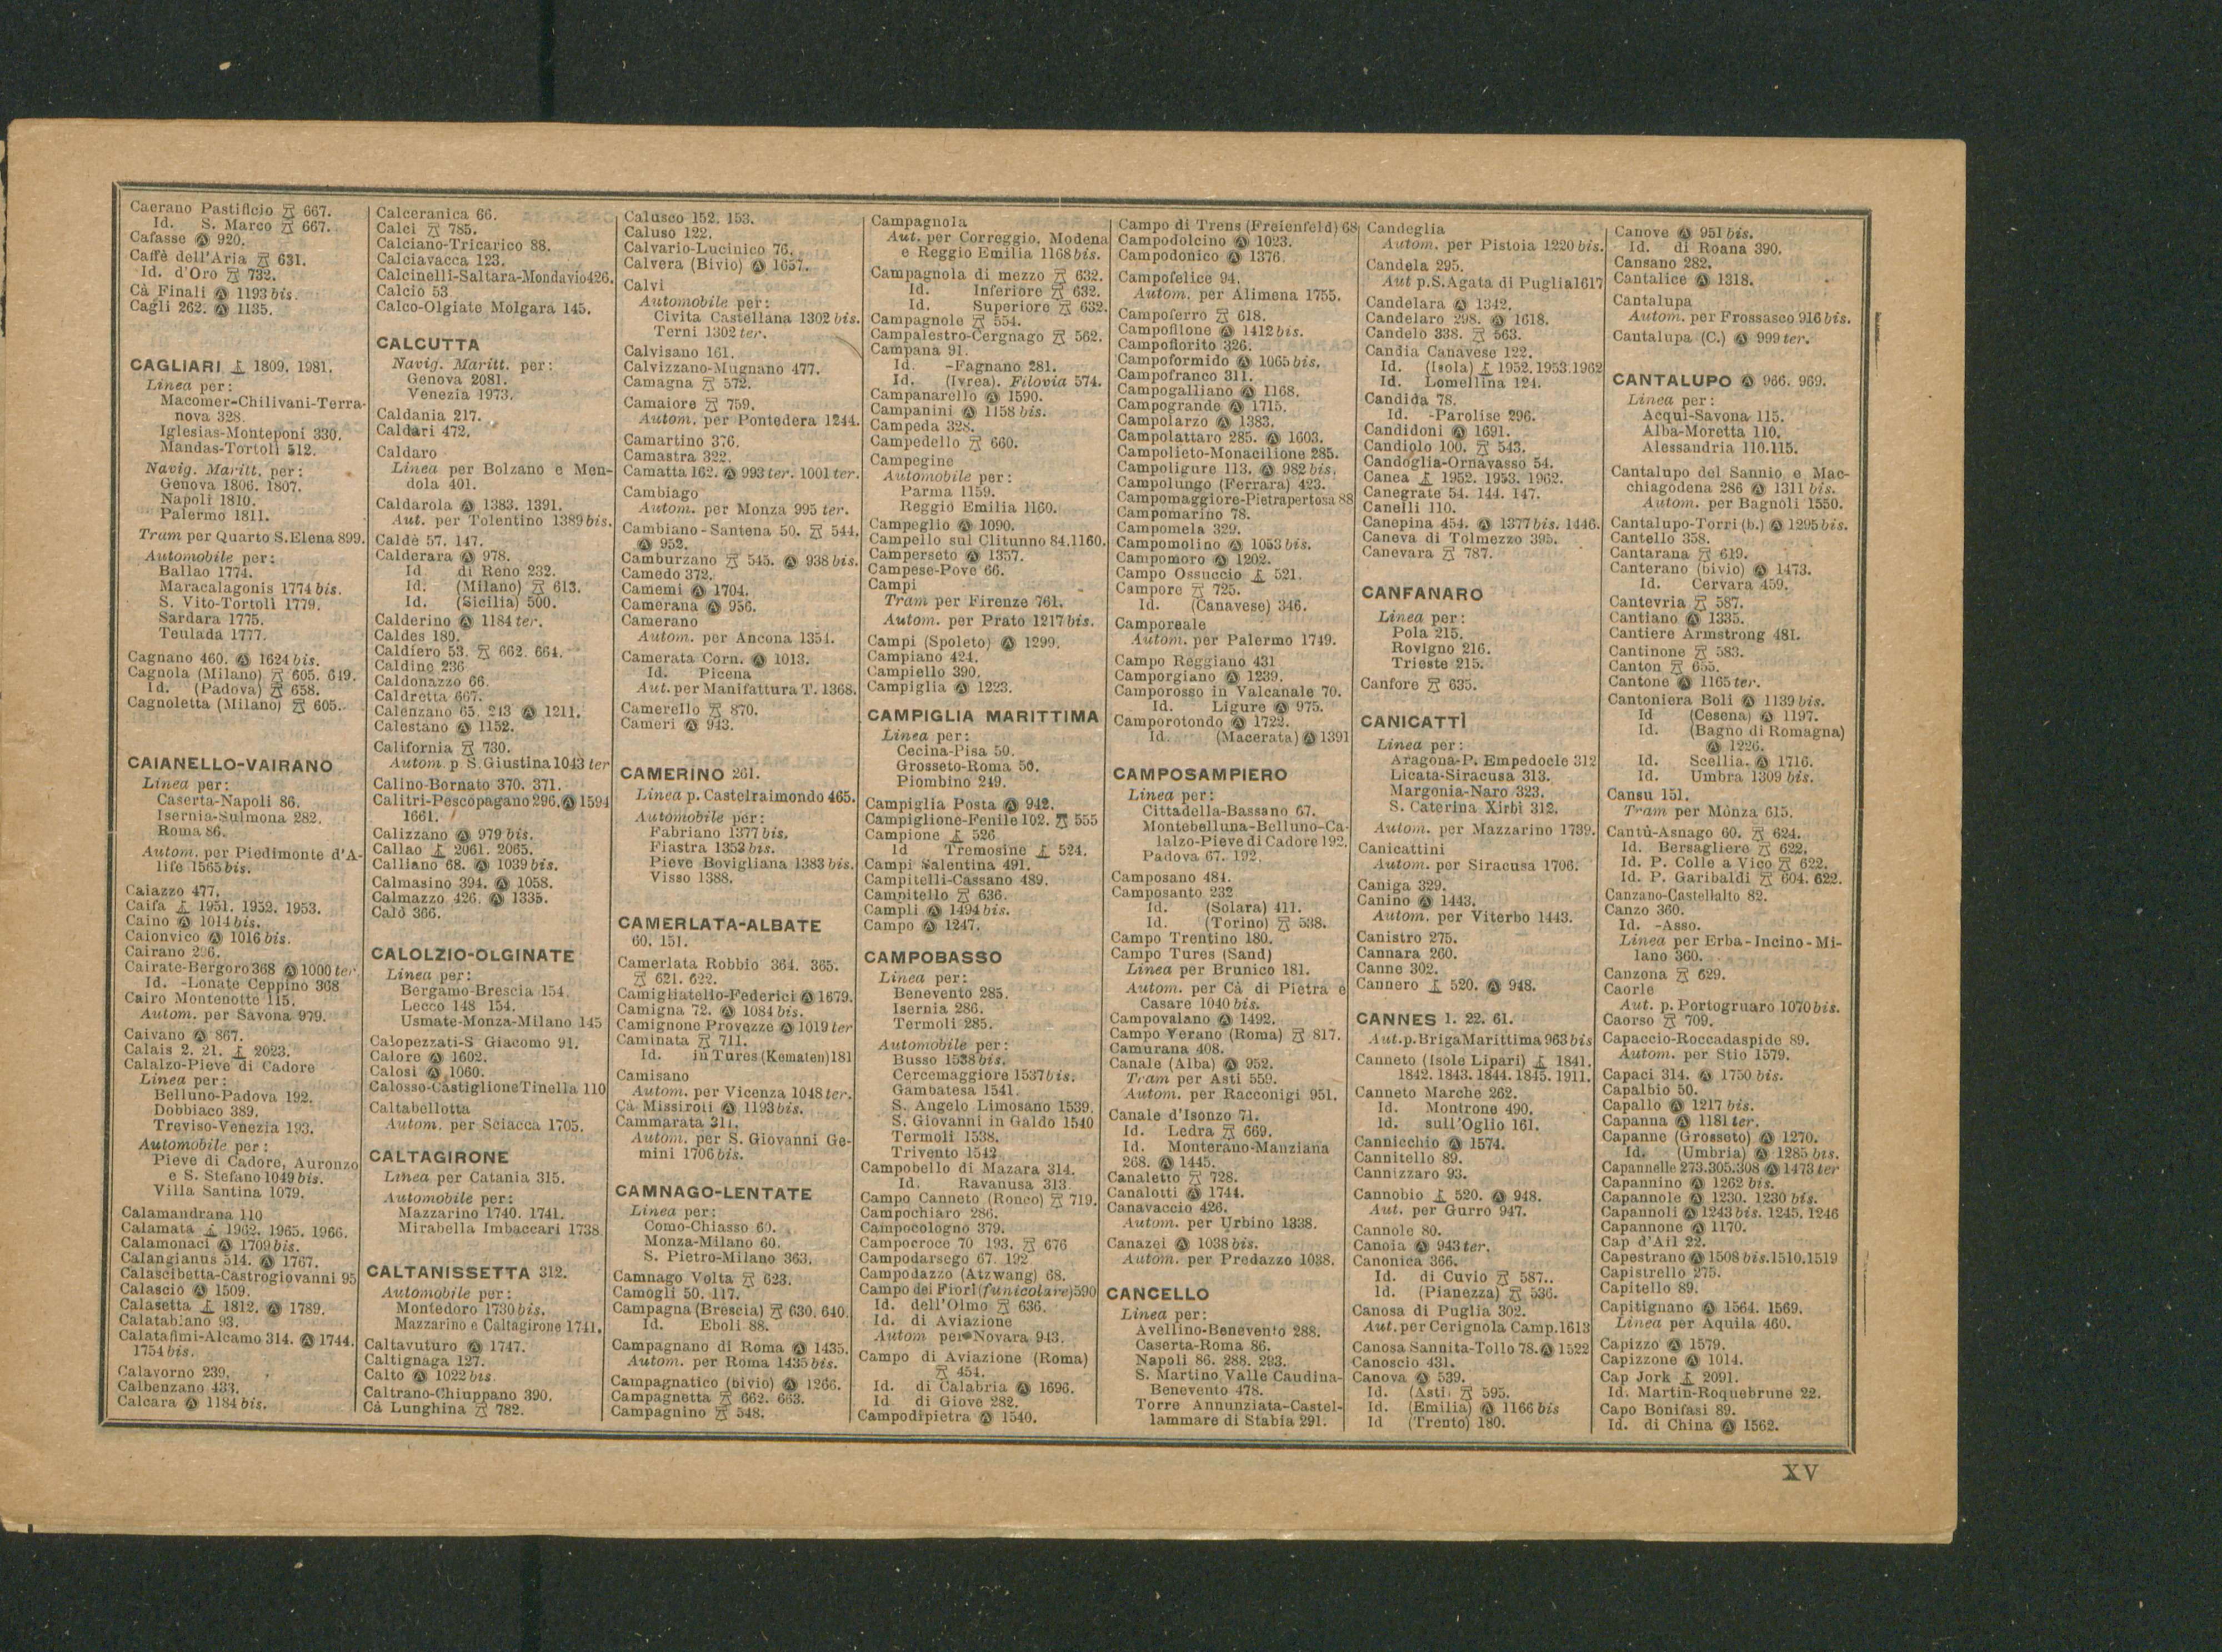 Caerano Pastificio 667.
Id. S. Marco 667.
Cafasse Ⓐ 920.
Caffè dell'Aria 631.
Id. d'Oro 732.
Cà Finali Ⓐ 1193 bis.
Cagli 262. Ⓐ 1135.
CAGLIARI 1809, 1981.
Linea per:
Macomer-Chilivani-Terra-
nova 328.
Iglesias-Monteponi 330.
Mandas-Tortolì 512.
Navig. Maritt. per:
Genova 1806. 1807.
Napoli 1810.
Palermo 1811.
Tram per Quarto S.Elena 899.
Automobile per:
Ballao 1774.
Maracalagonis 1774 bis.
S. Vito-Tortolì 1779.
Sardara 1775.
Teulada 1777.
Cagnano 460. Ⓐ 1624 bis.
Cagnola (Milano) 605. 619.
Id. (Padova) 658.
Cagnoletta (Milano) 605.
CAIANELLO-VAIRANO
Linea per:
Caserta-Napoli 86.
Isernia-Sulmona 282.
Roma 86.
Autom. per Piedimonte d'A-
life 1565 bis.
Caiazzo 477.
Caifa 1951. 1952. 1953.
Caino Ⓐ 1014 bis.
Caionvico Ⓐ 1016 bis.
Cairano 296.
Cairate-Bergoro 368 Ⓐ 1000 ter.
Id. -Lonate Ceppino 368
Cairo Montenotte 115.
Autom. per Savona 979.
Caivano Ⓐ 867.
Calais 2. 21. 2023.
Calalzo-Pieve di Cadore
Linea per:
Belluno-Padova 192.
Dobbiaco 389.
Treviso-Venezia 193.
Automobile per:
Pieve di Cadore, Auronzo
e S. Stefano 1049 bis.
Villa Santina 1079.
Calamandrana 110
Calamata 1962. 1965. 1966.
Calamonaci Ⓐ 1709 bis.
Calangianus 514. Ⓐ 1767.
Calascibetta-Castrogiovanni 95
Calascio Ⓐ 1509.
Calasetta 1812. Ⓐ 1789.
Calatabiano 93.
Calatafimi-Alcamo 314. Ⓐ 1744.
1754 bis.
Calavorno 239.
Calbenzano 433.
Calcara Ⓐ 1184 bis.
Calceranica 66.
Calci 785.
Calciano-Tricarico 88.
Calciavacca 123.
Calcinelli-Saltara-Mondavio 426.
Calcio 53
Calco-Olgiate Molgara 145.
CALCUTTA
Navig. Maritt. per:
Genova 2081.
Venezia 1973.
Caldania 217.
Caldari 472.
Caldaro
Linea per Bolzano e Men-
dola 401.
Caldarola Ⓐ 1383. 1391.
Aut. per Tolentino 1389 bis.
Caldè 57. 147.
Calderara Ⓐ 978.
Id di Reno 232.
Id. (Milano) 613.
Id. (Sicilia) 500.
Calderino Ⓐ 1184 ter.
Caldes 189.
Caldiero 53. 662. 664.
Caldine 236
Caldonazzo 66.
Caldretta 667.
Calenzano 65. 243 Ⓐ 1211.
Calestano Ⓐ 1152.
California 730.
Autom. p S. Giustina 1043 ter
Calino-Bornato 370. 371.
Calitri-Pescopagano 296. Ⓐ 1594
1661.
Calizzano Ⓐ 979 bis.
Callao 2061. 2065.
Calliano 68. Ⓐ 1039 bis.
Calmasino 394. Ⓐ 1058.
Calmazzo 426. Ⓐ 1335.
Calò 366.
CALOLZIO-OLGINATE
Linea per:
Bergamo-Brescia 154.
Lecco 148 154.
Usmate-Monza-Milano 145
Calopezzati-S Giacomo 91.
Calore Ⓐ 1602.
Calosi Ⓐ 1060.
Calosso-Castiglione Tinella 110
Caltabellotta
Autom. per Sciacca 1705.
CALTAGIRONE
Linea per Catania 315.
Automobile per:
Mazzarino 1740. 1741.
Mirabella Imbaccari 1738
CALTANISSETTA 312.
Automobile per:
Montedoro 1730 bis.
Mazzarino e Caltagirone 1741.
Caltavuturo Ⓐ 1747.
Caltignaga 127.
Calto Ⓐ 1022 bis
Caltrano-Chiuppano 390.
Cà Lunghina 782.
Calusco 152. 153.
Caluso 122.
Calvario-Lucinico 76.
Calvera (Bivio) Ⓐ 1657.
Calvi
Automobile per:
Civita Castellana 1302 bis.
Terni 1302 ter.
Calvisano 161.
Calvizzano-Mugnano 477.
Camagna 572.
Camaiore 759.
Autom. per Pontedera 1244.
Camartino 376.
Camastra 322.
Camatta 162. Ⓐ 993 ter. 1001 ter.
Cambiago
Autom. per Monza 995 ter.
Cambiano-Santena 50. 544.
Ⓐ 952.
Camburzano 545. Ⓐ 938 bis.
Camedo 372.
Camemi Ⓐ 1704.
Camerana Ⓐ 956.
Camerano
Autom. per Ancona 1354.
Camerata Corn. Ⓐ 1013.
Id. Picena
Aut. per Manifattura T. 1368.
Camerello 870.
Cameri Ⓐ 943.
CAMERINO 261.
Linea p. Castelraimondo 465.
Automobile per:
Fabriano 1377 bis.
Fiastra 1353 bis.
Pieve Bovigliana 1383 bis.
Visso 1388.
CAMERLATA-ALBATE
60. 151.
Camerlata Robbio 364. 365.
621. 622.
Camigliatello-Federici Ⓐ 1679.
Camigna 72. Ⓐ 1084 bis.
Camignone Provezze Ⓐ 1019 ter
Caminata 711.
Id. in Tures (Kematen) 181
Camisano
Autom. per Vicenza 1048 ter.
Cà Missiroli Ⓐ 1193 bis.
Cammarata 311.
Autom. per S. Giovanni Ge-
mini 1706 bis.
CAMNAGO-LENTATE
Linea per:
Como-Chiasso 60.
Monza-Milano 60.
S. Pietro-Milano 363.
Camnago Volta 623.
Camogli 50. 117.
Campagna (Brescia) 630. 640.
Id. Eboli 88.
Campagnano di Roma Ⓐ 1435.
Autom. per Roma 1435 bis.
Campagnatico (bivio) Ⓐ 1266.
Campagnetta 662. 663.
Campagnino 548.
Campagnola
Aut. per Correggio, Modena
e Reggio Emilia 1168 bis.
Campagnola di mezzo 632.
Id. Inferiore 632.
Id. Superiore 632.
Campagnole 554.
Campalestro-Cergnago 562.
Campana 91.
Id. -Fagnano 281.
Id. (Ivrea). Filovia 574.
Campanarello Ⓐ 1590.
Campanini Ⓐ 1158 bis.
Campeda 328.
Campedello 660.
Campegine
Automobile per:
Parma 1159.
Reggio Emilia 1160.
Campeglio Ⓐ 1090.
Campello sul Clitunno 84.1160.
Camperseto Ⓐ 1357.
Campese-Pove 66.
Campi
Tram per Firenze 761.
Autom. per Prato 1217 bis.
Campi (Spoleto) Ⓐ 1299.
Campiano 424.
Campiello 390.
Campiglia Ⓐ 1223.
CAMPIGLIA MARITTIMA
Linea per:
Cecina-Pisa 50.
Grosseto-Roma 50.
Piombino 249.
Campiglia Posta Ⓐ 942.
Campiglione-Fenile 102. 555
Campione 526
Id Tremosine 524.
Campi Salentina 491.
Campitelli-Cassano 489.
Campitello 636.
Campli Ⓐ 1494 bis.
Campo Ⓐ 1247.
CAMPOBASSO
Linea per:
Benevento 285.
Isernia 286.
Termoli 285.
Automobile per:
Busso 1538 bis.
Cercemaggiore 1537 bis.
Gambatesa 1541.
S. Angelo Limosano 1539.
S. Giovanni in Galdo 1540
Termoli 1538.
Trivento 1542
Campobello di Mazara 314.
Id. Ravanusa 313
Campo Canneto (Ronco) 719.
Campochiaro 286.
Campocologno 379.
Campocroce 70 193. 676
Campodarsego 67. 192
Campodazzo (Atzwang) 68.
Campo dei Fiori (funicolare) 590
Id. dell'Olmo 636.
Id. di Aviazione
Autom per Novara 943.
Campo di Aviazione (Roma)
454.
Id. di Calabria Ⓐ 1696.
Id di Giove 282.
Campodipietra Ⓐ 1540.
Campo di Trens (Freienfeld) 68
Campodolcino Ⓐ 1023.
Campodonico Ⓐ 1376.
Campofelice 94.
Autom. per Alimena 1755.
Campoferro 618.
Campofilone Ⓐ 1412 bis.
Campoflorito 326.
Campoformido Ⓐ 1065 bis.
Campofranco 311.
Campogalliano Ⓐ 1168.
Campogrande Ⓐ 1715.
Campolarzo Ⓐ 1383.
Campolattaro 285. Ⓐ 1603.
Campolieto-Monacilione 285.
Campoligure 113. Ⓐ 982 bis.
Campolungo (Ferrara) 423.
Campomaggiore-Pietrapertosa 88
Campomarino 78.
Campomela 329.
Campomolino Ⓐ 1053 bis.
Campomoro Ⓐ 1202.
Campo Ossuccio 521.
Campore 725.
Id. (Canavese) 346.
Camporeale
Autom. per Palermo 1749.
Campo Reggiano 431
Camporgiano Ⓐ 1239.
Camporosso in Valcanale 70.
Id. Ligure Ⓐ 975.
Camporotondo Ⓐ 1722.
Id. (Macerata) Ⓐ 1391
CAMPOSAMPIERO
Linea per:
Cittadella-Bassano 67.
Montebelluna-Belluno-Ca-
lalzo-Pieve di Cadore 192.
Padova 67. 192.
Camposano 484.
Camposanto 232
Id. (Solara) 411.
Id. (Torino) 538.
Campo Trentino 180.
Campo Tures (Sand)
Linea per Brunico 181.
Autom. per Cà di Pietra e
Casare 1040 bis.
Campovalano Ⓐ 1492.
Campo Verano (Roma) 817.
Camurana 408.
Canale (Alba) Ⓐ 952.
Tram per Asti 559.
Autom. per Racconigi 951.
Canale d'Isonzo 71.
Id. Ledra 669.
Id. Monterano-Manziana
268. Ⓐ 1445.
Canaletto 728.
Canalotti Ⓐ 1744.
Canavaccio 426.
Autom. per Urbino 1338.
Canazei Ⓐ 1038 bis.
Autom. per Predazzo 1038.
CANCELLO
Linea per:
Avellino-Benevento 288.
Caserta-Roma 86.
Napoli 86. 288. 293.
S. Martino Valle Caudina-
Benevento 478.
Torre Annunziata-Castel-
lammare di Stabia 291.
Candeglia
Autom. per Pistoia 1220 bis.
Candela 295.
Aut p.S.Agata di Puglia 1617
Candelara Ⓐ 1342.
Candelaro 298. Ⓐ 1618.
Candelo 338. 563.
Candia Canavese 122.
Id. (Isola) 1952.1953.1962
Id. Lomellina 124.
Candida 78.
Id. -Parolise 296.
Candidoni Ⓐ 1691.
Candiolo 100. 543.
Candoglia-Ornavasso 54.
Canea 1952. 1953. 1962.
Canegrate 54. 144. 147.
Canelli 110.
Canepina 454. Ⓐ 1377 bis. 1446.
Caneva di Tolmezzo 395.
Canevara 787.
CANFANARO
Linea per:
Pola 215.
Rovigno 216.
Trieste 215.
Canfore 635.
CANICATTÌ
Linea per:
Aragona-P. Empedocle 312
Licata-Siracusa 313.
Margonia-Naro 323.
S. Caterina Xirbi 312.
Autom. per Mazzarino 1739.
Canicattini
Autom. per Siracusa 1706.
Caniga 329.
Canino Ⓐ 1443.
Autom. per Viterbo 1443.
Canistro 275.
Cannara 260.
Canne 302.
Cannero 520. Ⓐ 948.
CANNES 1. 22. 61.
Aut.p.Briga Marittima 963 bis
Canneto (Isole Lipari) 1841.
1842. 1843. 1844. 1845. 1911.
Canneto Marche 262.
Id. Montrone 490.
Id. sull'Oglio 161.
Cannicchio Ⓐ 1574.
Cannitello 89.
Cannizzaro 93.
Cannobio 520. Ⓐ 948.
Aut. per Gurro 947.
Cannole 80.
Canoia Ⓐ 943 ter.
Canonica 366.
Id. di Cuvio 587..
Id. (Pianezza) 536.
Canosa di Puglia 302.
Aut. per Cerignola Camp. 1613
Canosa Sannita-Tollo 78. Ⓐ 1522
Canoscio 431.
Canova Ⓐ 539.
Id. (Asti. 595.
Id. (Emilia) Ⓐ 1166 bis
Id (Trento) 180.
Canove Ⓐ 951 bis.
Id. di Roana 390.
Cansano 282.
Cantalice Ⓐ 1318.
Cantalupa
Autom. per Frossasco 916 bis.
Cantalupa (C.) Ⓐ 999 ter.
CANTALUPO Ⓐ 966. 969.
Linea per:
Acqui-Savona 115.
Alba-Moretta 110.
Alessandria 110.115.
Cantalupo del Sannio e Mac-
chiagodena 286 Ⓐ 1311 bis.
Autom. per Bagnoli 1550.
Cantalupo-Torri (b.) Ⓐ 1295 bis.
Cantello 358.
Cantarana 619.
Canterano (bivio) Ⓐ 1473.
Id. Cervara 459.
Cantevria 587.
Cantiano Ⓐ 1335.
Cantiere Armstrong 481.
Cantinone 583.
Canton 655.
Cantone Ⓐ 1165 ter.
Cantoniera Boli Ⓐ 1139 bis.
Id (Cesena) Ⓐ 1197.
Id. (Bagno di Romagna)
Ⓐ 1226.
Id. Scellia. Ⓐ 1716.
Id. Umbra 1309 bis.
Cansu 151.
Tram per Monza 615.
Cantù-Asnago 60. 624.
Id. Bersagliere 622.
Id. P. Colle a Vico 622.
Id. P. Garibaldi 604. 622.
Canzano-Castellalto 82.
Canzo 360.
Id. -Asso.
Linea per Erba-Incino-Mi-
lano 360.
Canzona 629.
Caorle
Aut. p. Portogruaro 1070 bis.
Caorso 709.
Capaccio-Roccadaspide 89.
Autom. per Stio 1579.
Capaci 314. Ⓐ 1750 bis.
Capalbio 50.
Capallo Ⓐ 1217 bis.
Capanna Ⓐ 1181 ter.
Capanne (Grosseto) Ⓐ 1270.
Id. (Umbria) Ⓐ 1285 bis.
Capannelle 273.305.308 Ⓐ 1473 ter
Capannino Ⓐ 1262 bis.
Capannole Ⓐ 1230. 1230 bis.
Capannoli Ⓐ 1243 bis. 1245. 1246
Capannone Ⓐ 1170.
Cap d'Ail 22.
Capestrano Ⓐ 1508 bis.1510.1519
Capistrello 275.
Capitello 89.
Capitignano Ⓐ 1564. 1569.
Linea per Aquila 460.
Capizzo Ⓐ 1579.
Capizzone Ⓐ 1014.
Cap Jork 2091.
Id. Martin-Roquebrune 22.
Capo Bonifasi 89.
Id. di China Ⓐ 1562.
XV